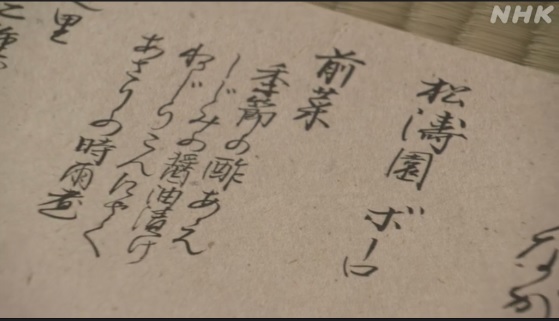 NHK
なか
松濤園 ボーロ
前菜
季節の酢あえ
しじみの醤油漬け
ねじりこんにゃく
あさりの時雨煮